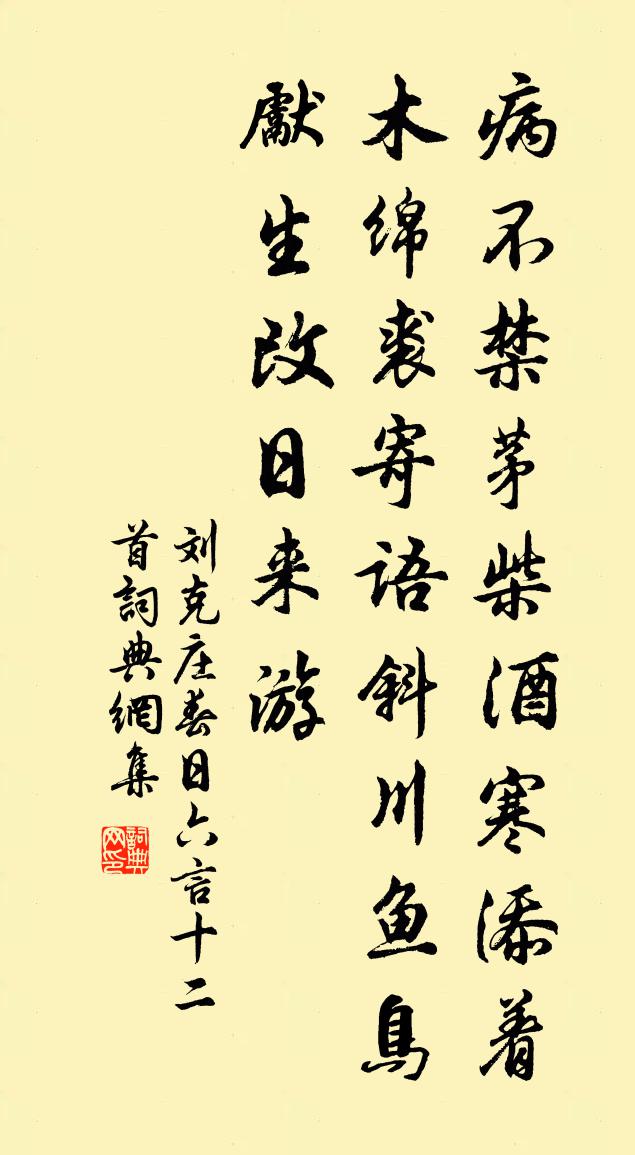 病不禁茅柴酒寒添着
木绵裘寄语斜川鱼鳥
獻生改日来游
刘克庄春日六言十二
首詞典網集
詞典网印